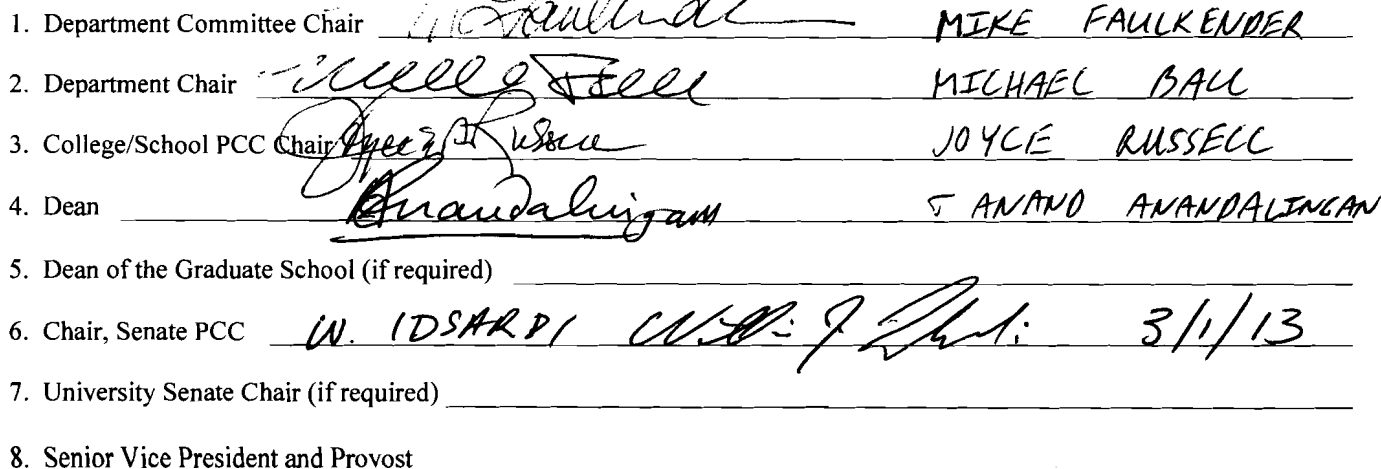 1. Department Committee Chair MIKE FAULKENDER
2. Department Chair MICHAEL BALL
3. College/School PCC Chair JOYCE RUSSELL
4. Dean Anandalingam G ANAND ANANDALINGAM
5. Dean of the Graduate School (if required)
6. Chair, Senate PCC W. IDSARDI 3/1/13
7. University Senate Chair (if required)
8. Senior Vice President and Provost